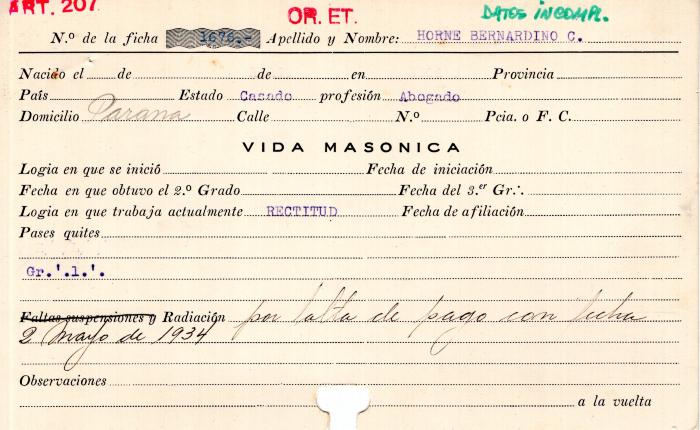 ART. 207
OR. ET.
DATOS INCOMPL.
N.º de la ficha 1676.- Apellido y Nombre: HORNE BERNARDINO C.
Nacido el de de en Provincia
País Estado Casado profesión Abogado
Domicilio Parana Calle N.º Pcia. o F. C.
VIDA MASONICA
Logia en que se inició Fecha de iniciación
Fecha en que obtuvo el 2.º Grado Fecha del 3.er Gr.·.
Logia en que trabaja actualmente RECTITUD Fecha de afiliación
Pases quites
Gr.'.1.'.
Faltas suspensiones y Radiación por falta de pago con fecha
2 Mayo de 1934
Observaciones
a la vuelta